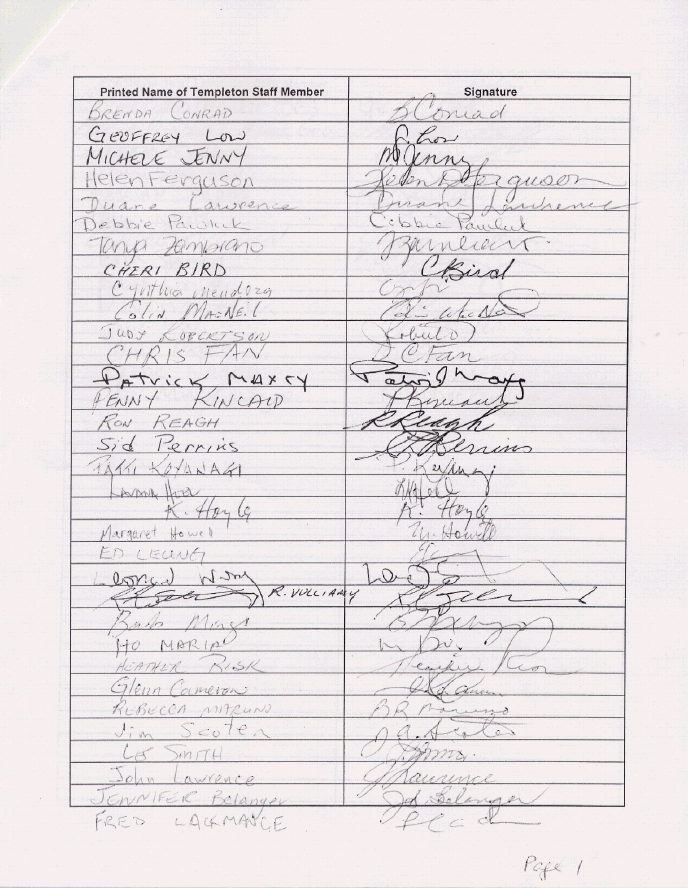 Printed Name of Templeton Staff Member Signature
BRENDA CONRAD B Conrad
GEOFFREY LOW G. Low
MICHELE JENNY M Jenny
Helen Ferguson Helen D Ferguson
Duane Lawrence Duane Lawrence
Debbie Pawluk Debbie Pawluk
Tanya Zambrano
CHERI BIRD C Bird
Cynthia Mendoza
COLIN MACNEIL Colin MacNeil
JUDY ROBERTSON
CHRIS FAN C Fan
PATRICK MAXCY Patrick Maxcy
PENNY KINCAID P Kincaid
RON REAGH R Reagh
Sid Perrins S Perrins
KOYANAGI
K. Hoyle K. Hoyle
Margaret Howell M. Howell
ED LEUNG
Leonard Wong
R. VULLIAMY
Barb
HO MARIA
HEATHER RISK Heather Risk
Glenn Cameron
REBECCA
Jim Scoten J.A. Scoten
LES SMITH
John Lawrence J Lawrence
JENNIFER Belanger Jd Belanger
FRED
Page 1